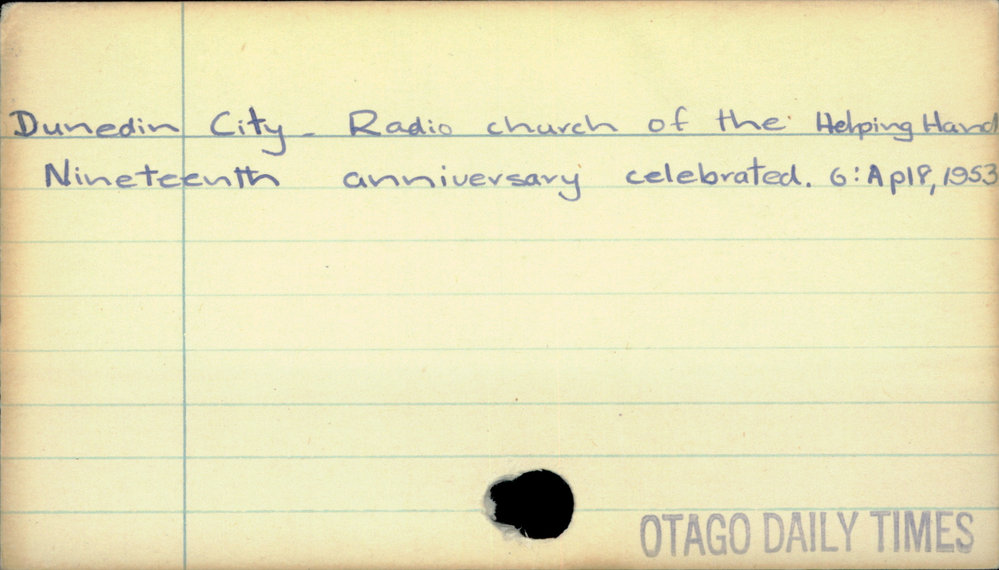 Dunedin City - Radio church of the Helping Hand
Nineteenth anniversary celebrated. 6: Ap 18, 1953
OTAGO DAILY TIMES